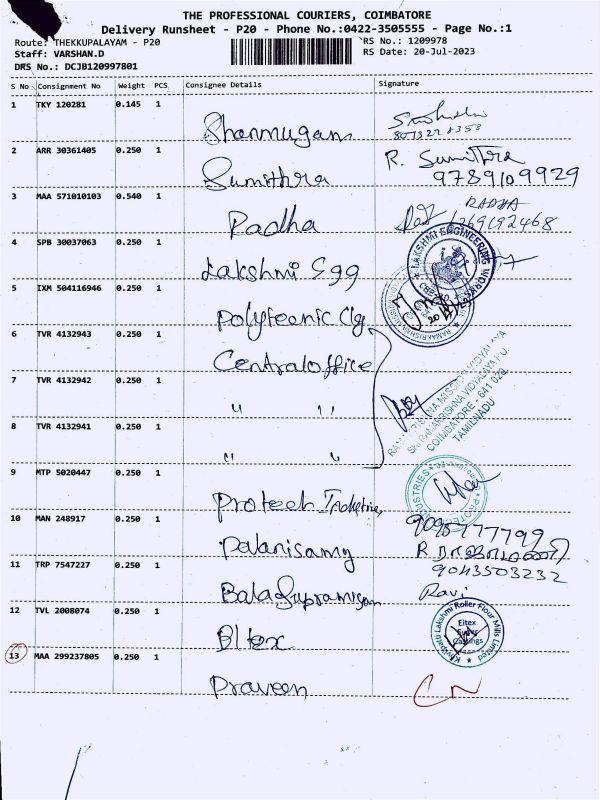 THE PROFESSIONAL COURIERS, COIMBATORE
Delivery Runsheet - P20 - Phone No.:0422-3505555 - Page No.:1
Route: THEKKUPALAYAM - P20
RS No.: 1209978
Staff: VARSHAN.D
RS Date: 20-Jul-2023
DRS No.: DCJB120997801
S No Consignment No Weight PCS Consignee Details Signature
1 TKY 120281 0.145 1
Shanmugam
2 ARR 30361405 0.250 1
Sumithra R. Sumithra
9789109929
3 MAA 571010103 0.540 1
Radha RADHA
4 SPB 30037063 0.250 1
Lakshmi Egg LAKSHMI ENGINEERING WORKS
5 IXM 504116946 0.250 1
Polyteenic Clg
6 TVR 4132943 0.250 1
Central office
7 TVR 4132942 0.250 1
" "
8 TVR 4132941 0.250 1
" "
COIMBATORE - 641 020
TAMILNADU
9 MTP 5020447 0.250 1
Protech Industries
10 MAN 248917 0.250 1
Palanisamy
11 TRP 7547227 0.250 1
9043503232
Balasupramiyan Ravi
12 TVL 2008074 0.250 1
Eltex
Lakshmi Roller Flour Mills Limited
Eltex Super Castings
13 MAA 299237805 0.250 1
Praveen